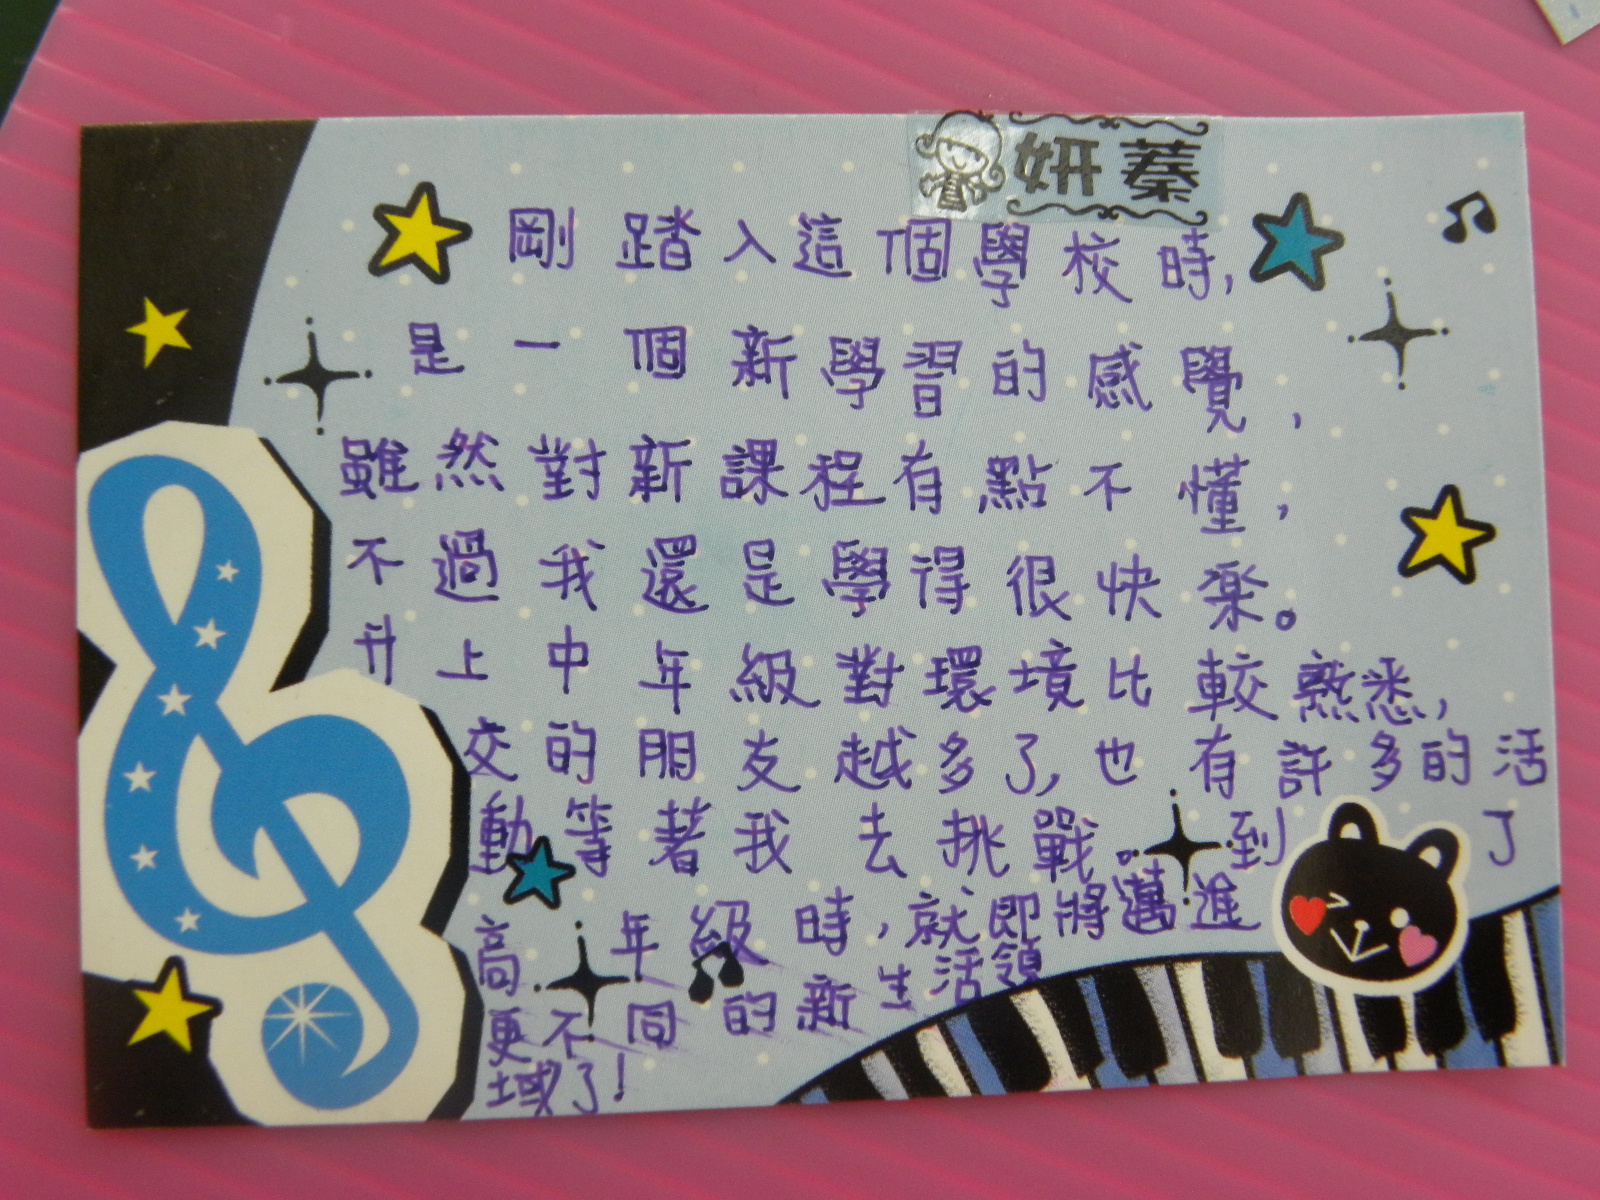 妍蓁
剛踏入這個學校時,
是一個新學習的感覺,
雖然對新課程有點不懂,
不過我還是學得很快楽。
升上中年級對環境比較熟悉,
交的朋友越多了,也有許多的活
動等著我去挑戰。到了
高年級時,就即將邁進
更不同的新生活領
域了!